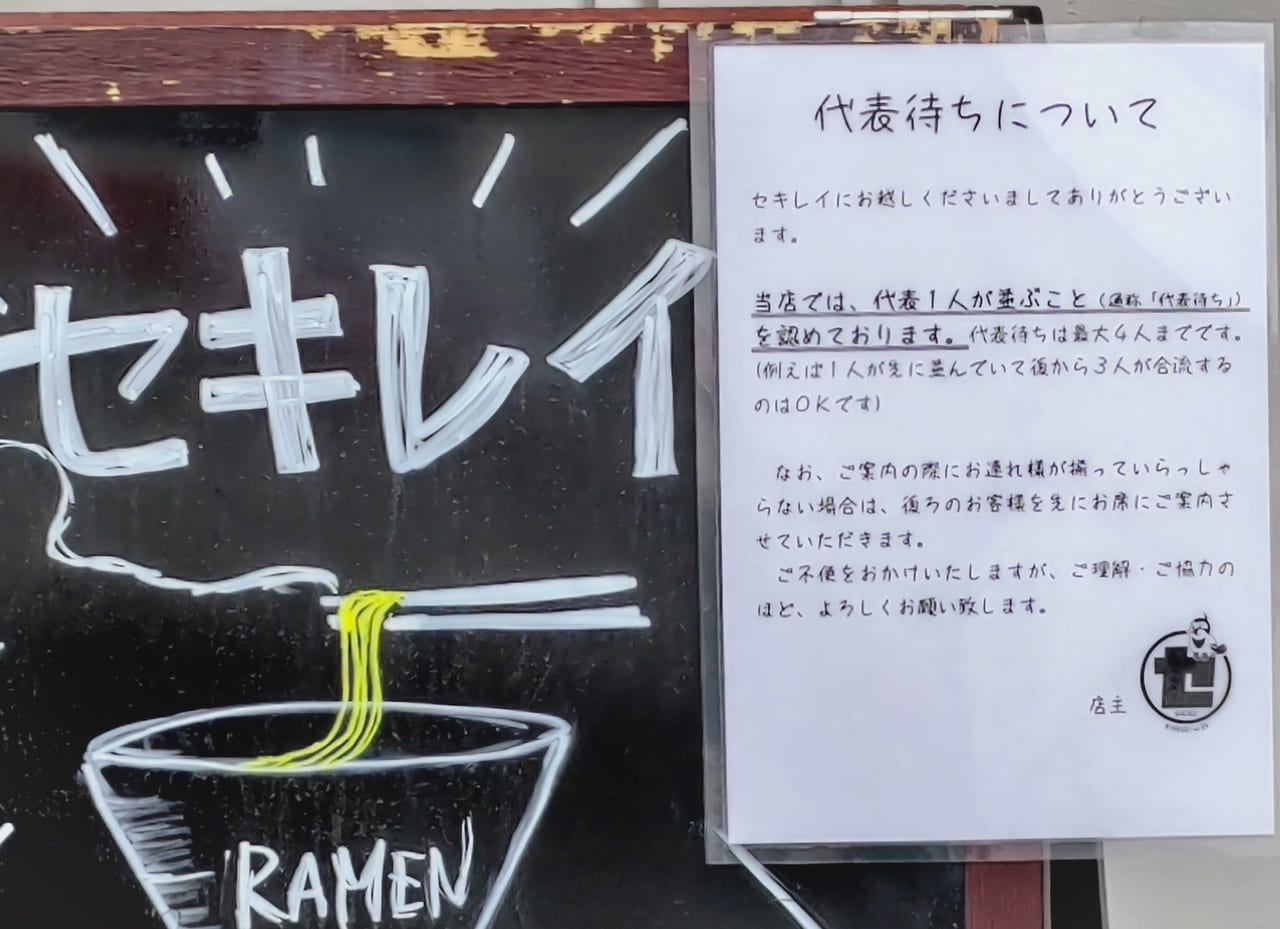 セキレイ
RAMEN
代表待ちについて
セキレイにお越しくださいましてありがとうござい
ます。
当店では、代表1人が並ぶこと(通称「代表待ち」)
を認めております。代表待ちは最大4人までです。
(例えば1人が先に並んでいて後から3人が合流する
のはOKです)
なお、ご案内の際にお連れ様が揃っていらっしゃ
らない場合は、後ろのお客様を先にお席にご案内さ
せていただきます。
ご不便をおかけいたしますが、ご理解・ご協力の
ほど、よろしくお願い致します。
店主
セ